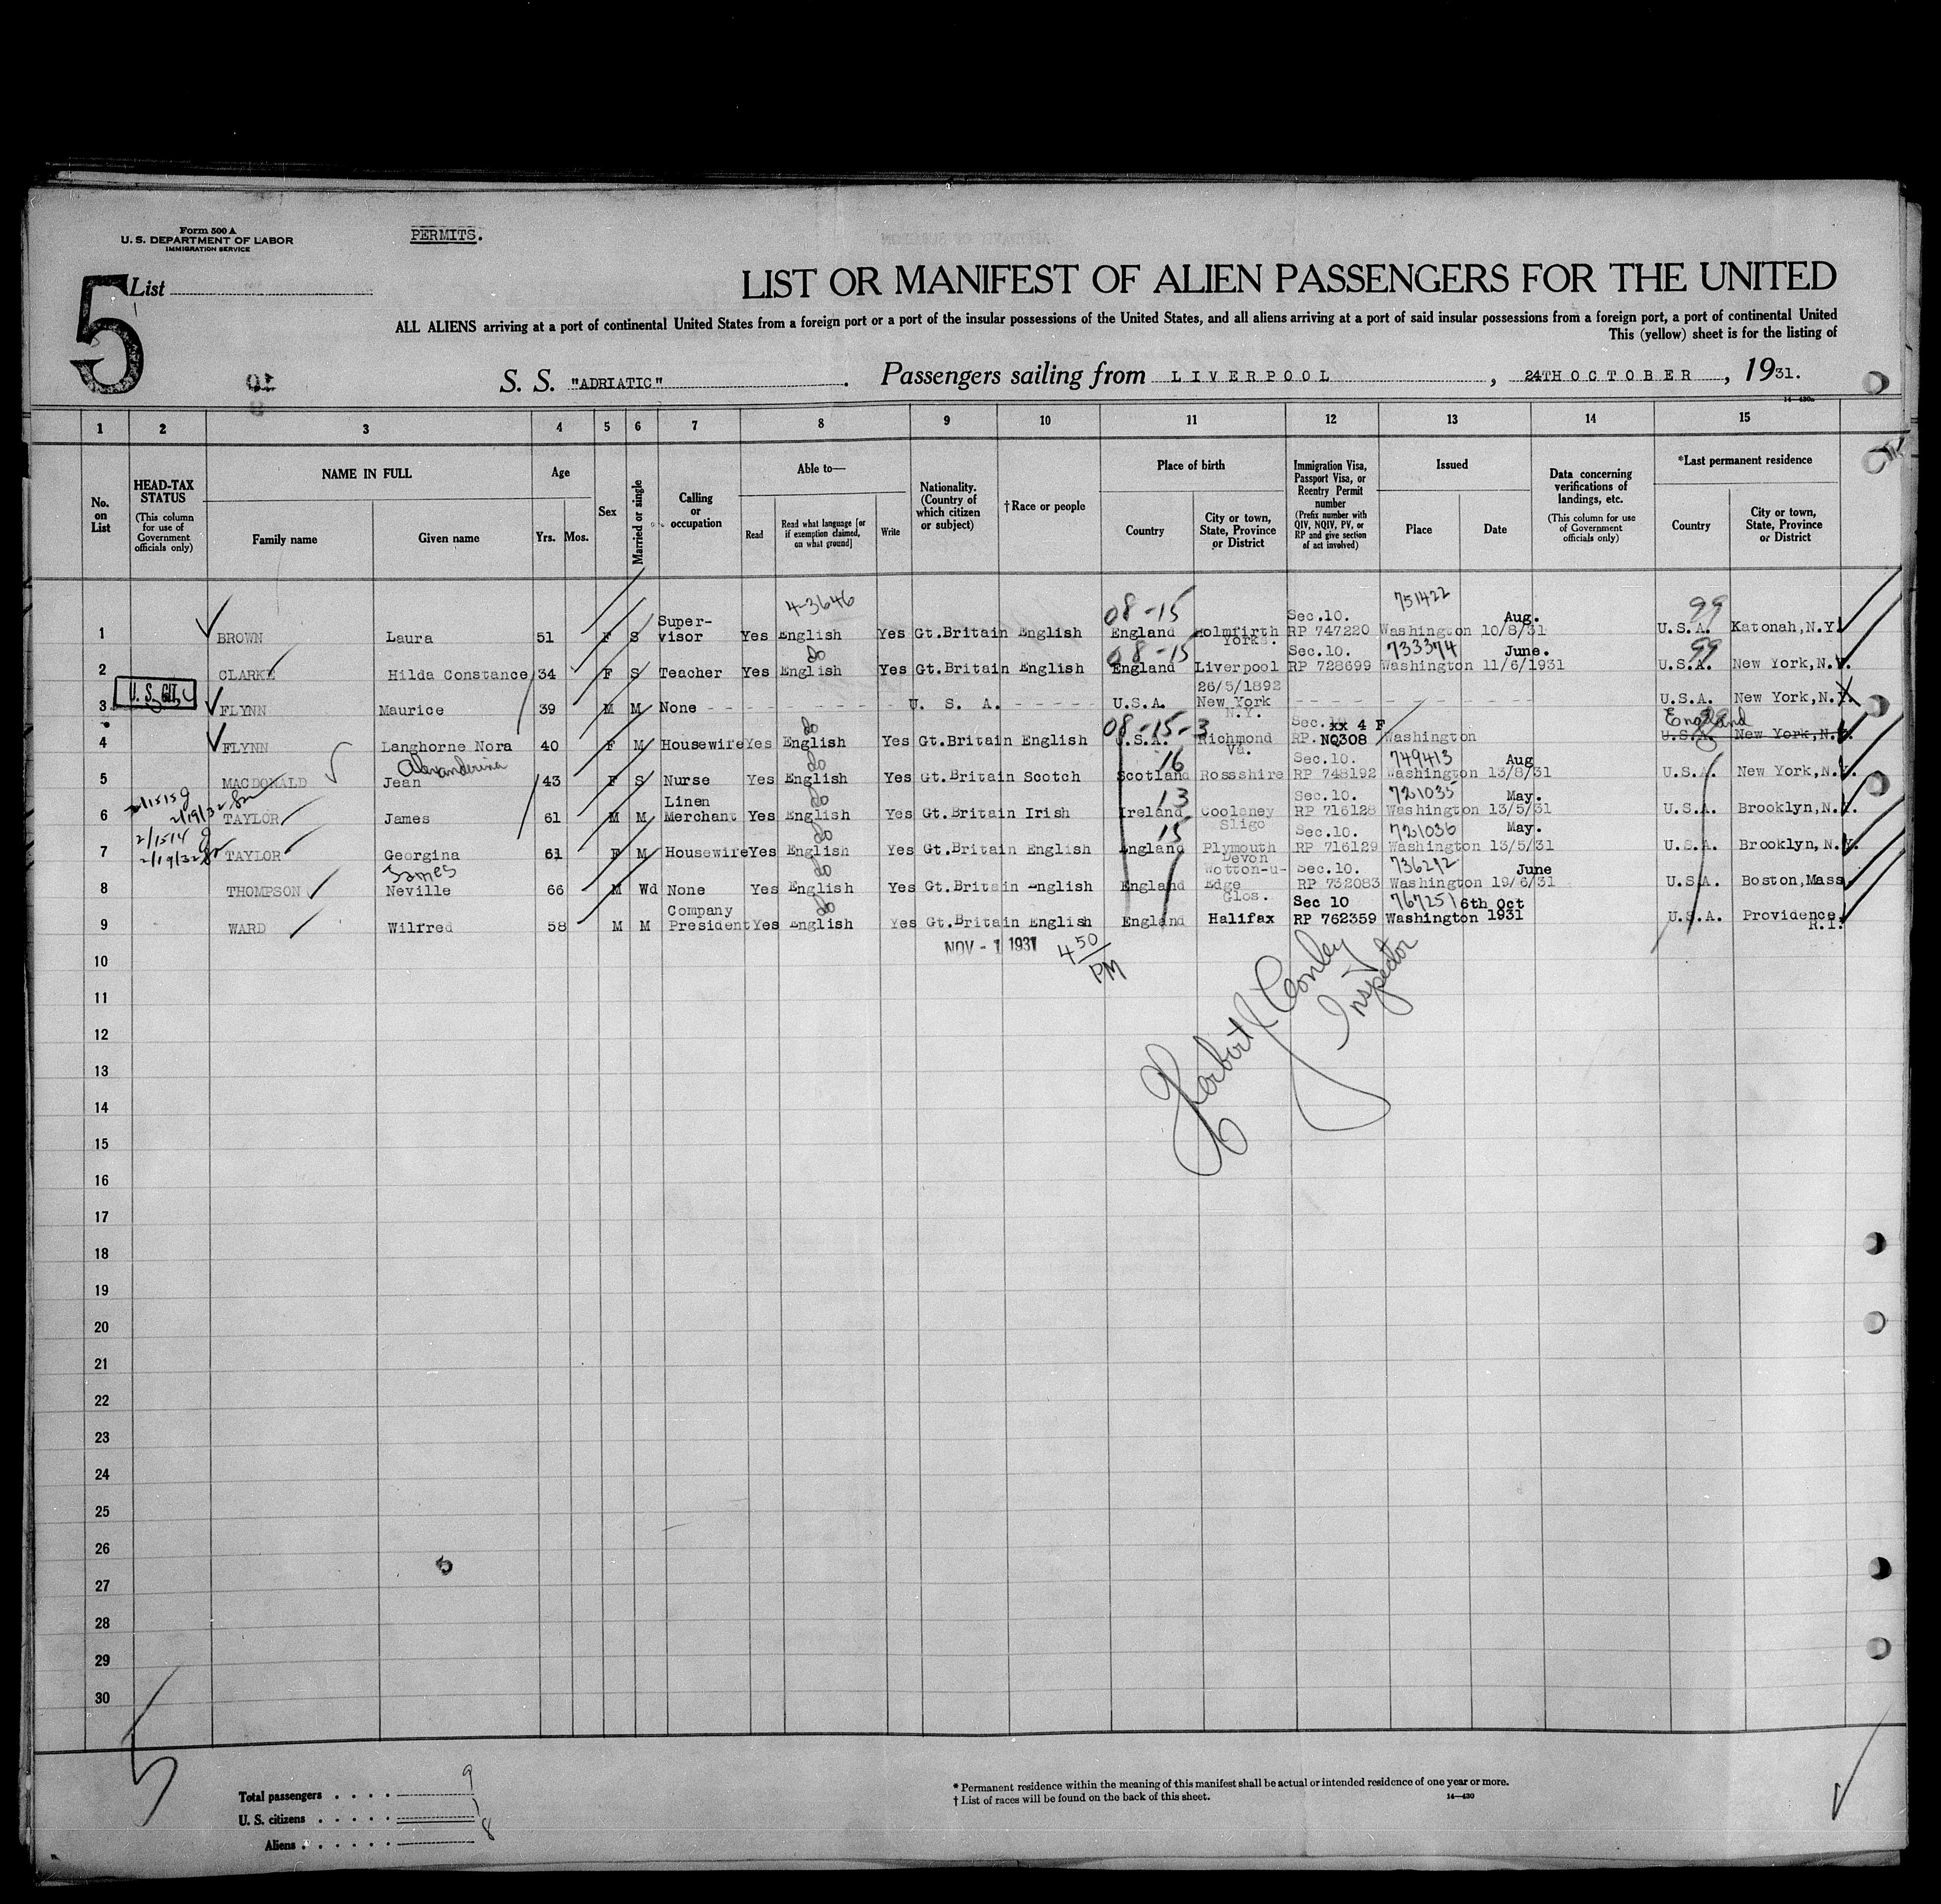 Form 500 A
U. S. DEPARTMENT OF LABOR
IMMIGRATION SERVICE
PERMITS.
5
List
LIST OR MANIFEST OF ALIEN PASSENGERS FOR THE UNITED
ALL ALIENS arriving at a port of continental United States from a foreign port or a port of the insular possessions of the United States, and all aliens arriving at a port of said insular possessions from a foreign port, a port of continental United
This (yellow) sheet is for the listing of
S. S. "ADRIATIC" . Passengers sailing from LIVERPOOL , 24TH OCTOBER , 1931.
14—430a
1 2 3 4 5 6 7 8 9 10 11 12 13 14 15
No. on List
HEAD-TAX STATUS (This column for use of Government officials only)
NAME IN FULL
Family name
Given name
Age
Yrs. Mos.
Sex
Married or single
Calling or occupation
Able to—
Read
Read what language [or if exemption claimed, on what ground]
Write
Nationality. (Country of which citizen or subject)
†Race or people
Place of birth
Country
City or town, State, Province or District
Immigration Visa, Passport Visa, or Reentry Permit number (Prefix number with QIV, NQIV, PV, or RP and give section of act involved)
Issued
Place
Date
Data concerning verifications of landings, etc. (This column for use of Government officials only)
*Last permanent residence
Country
City or town, State, Province or District
4-3646 08-15 Sec.10. 751422 Aug. 99
1 BROWN Laura 51 F S Super-visor Yes English Yes Gt.Britain English England Holmfirth York. RP 747220 Washington 10/8/31 U.S.A. Katonah, N.Y.
do 08-15 Sec.10. 733374 June. 99
2 CLARKE Hilda Constance 34 F S Teacher Yes English Yes Gt.Britain English England Liverpool RP 728699 Washington 11/6/1931 U.S.A. New York, N.Y.
U. S. CIT.
3 FLYNN Maurice 39 M M None - - - - - U. S. A. - - - - - U.S.A. 26/5/1892 New York N.Y. - - - - - U.S.A. New York, N.Y.
do 08-15-3 Sec. xx 4 F England 99
4 FLYNN Langhorne Nora 40 F M Housewife Yes English Yes Gt.Britain English U.S.A. Richmond Va. RP. NQ308 Washington U.S.A. New York, N.Y.
Alexanderina do 16 Sec.10. 749413 Aug
5 MACDONALD Jean 43 F S Nurse Yes English Yes Gt.Britain Scotch Scotland Rossshire RP 748192 Washington 13/8/31 U.S.A. New York, N.Y.
2/19/32 do 13 Sec.10. 721035 May.
6 TAYLOR James 61 M M Linen Merchant Yes English Yes Gt.Britain Irish Ireland Coolaney Sligo RP 716128 Washington 13/5/31 U.S.A. Brooklyn, N.Y.
2/1514 2/19/32 do 15 Sec.10. 721036 May.
7 TAYLOR Georgina 61 F M Housewife Yes English Yes Gt.Britain English England Plymouth Devon RP 716129 Washington 13/5/31 U.S.A. Brooklyn, N.Y.
James do Sec.10. 736292 June
8 THOMPSON Neville 66 M Wd None Yes English Yes Gt.Britain English England Wotton-u-Edge Glos. RP 732083 Washington 19/6/31 U.S.A. Boston, Mass
do Sec 10 767251 6th Oct
9 WARD Wilfred 58 M M Company President Yes English Yes Gt.Britain English England Halifax RP 762359 Washington 1931 U.S.A. Providence R.I.
NOV - 1 1931 4 50/PM
Inspector
10
11
12
13
14
15
16
17
18
19
20
21
22
23
24
25
26
27
28
29
30
5
5
Total passengers . . . . 9
U. S. citizens . . . . . 1
Aliens . . . . . . 8
* Permanent residence within the meaning of this manifest shall be actual or intended residence of one year or more.
† List of races will be found on the back of this sheet.
14—430